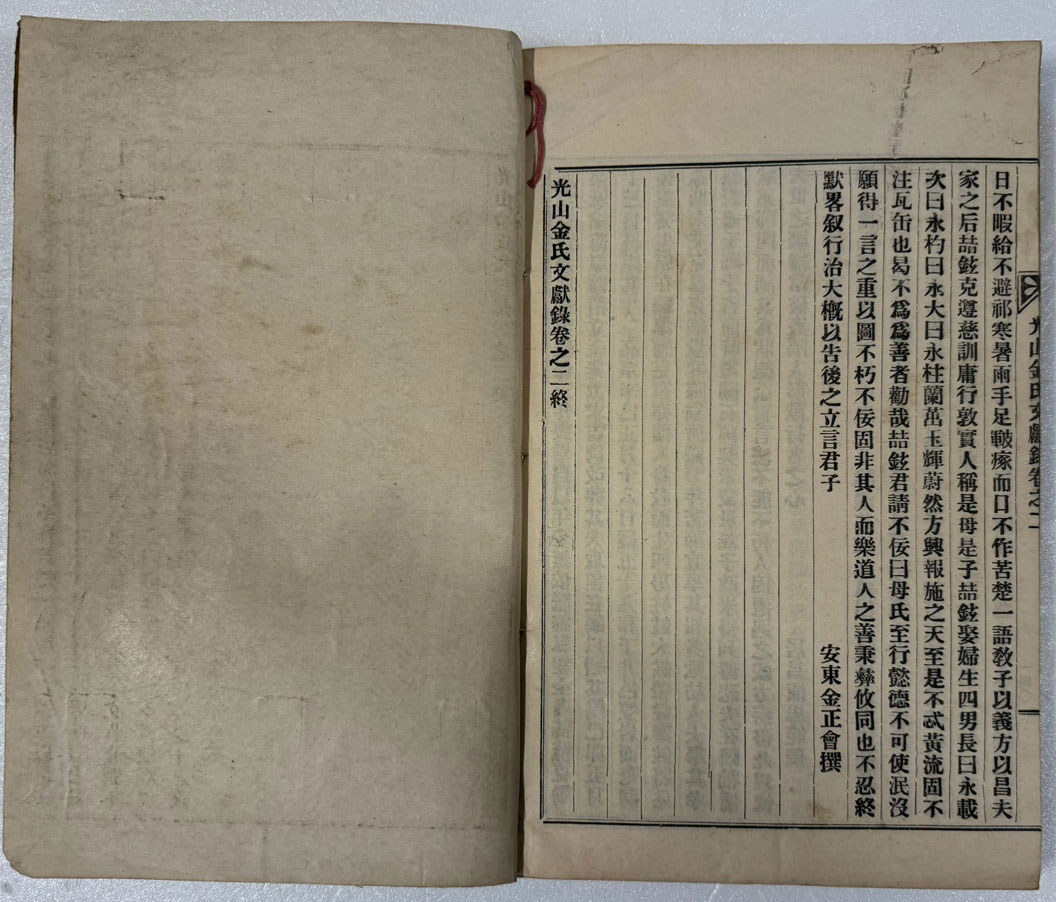 光山金氏文獻錄卷之二
日不暇給不避祁寒暑雨手足皸瘃而口不作苦楚一語教子以義方以昌夫
家之后喆鉉克遵慈訓庸行敦實人稱是母是子喆鉉娶婦生四男長曰永載
次曰永杓曰永大曰永柱蘭萬玉輝蔚然方興報施之天至是不忒黃流固不
注瓦缶也曷不爲爲善者勸哉喆鉉君請不佞曰母氏至行懿德不可使泯沒
願得一言之重以圖不朽不佞固非其人而樂道人之善秉彝攸同也不忍終
默畧叙行治大槪以告後之立言君子 安東金正會撰
光山金氏文獻錄卷之二終